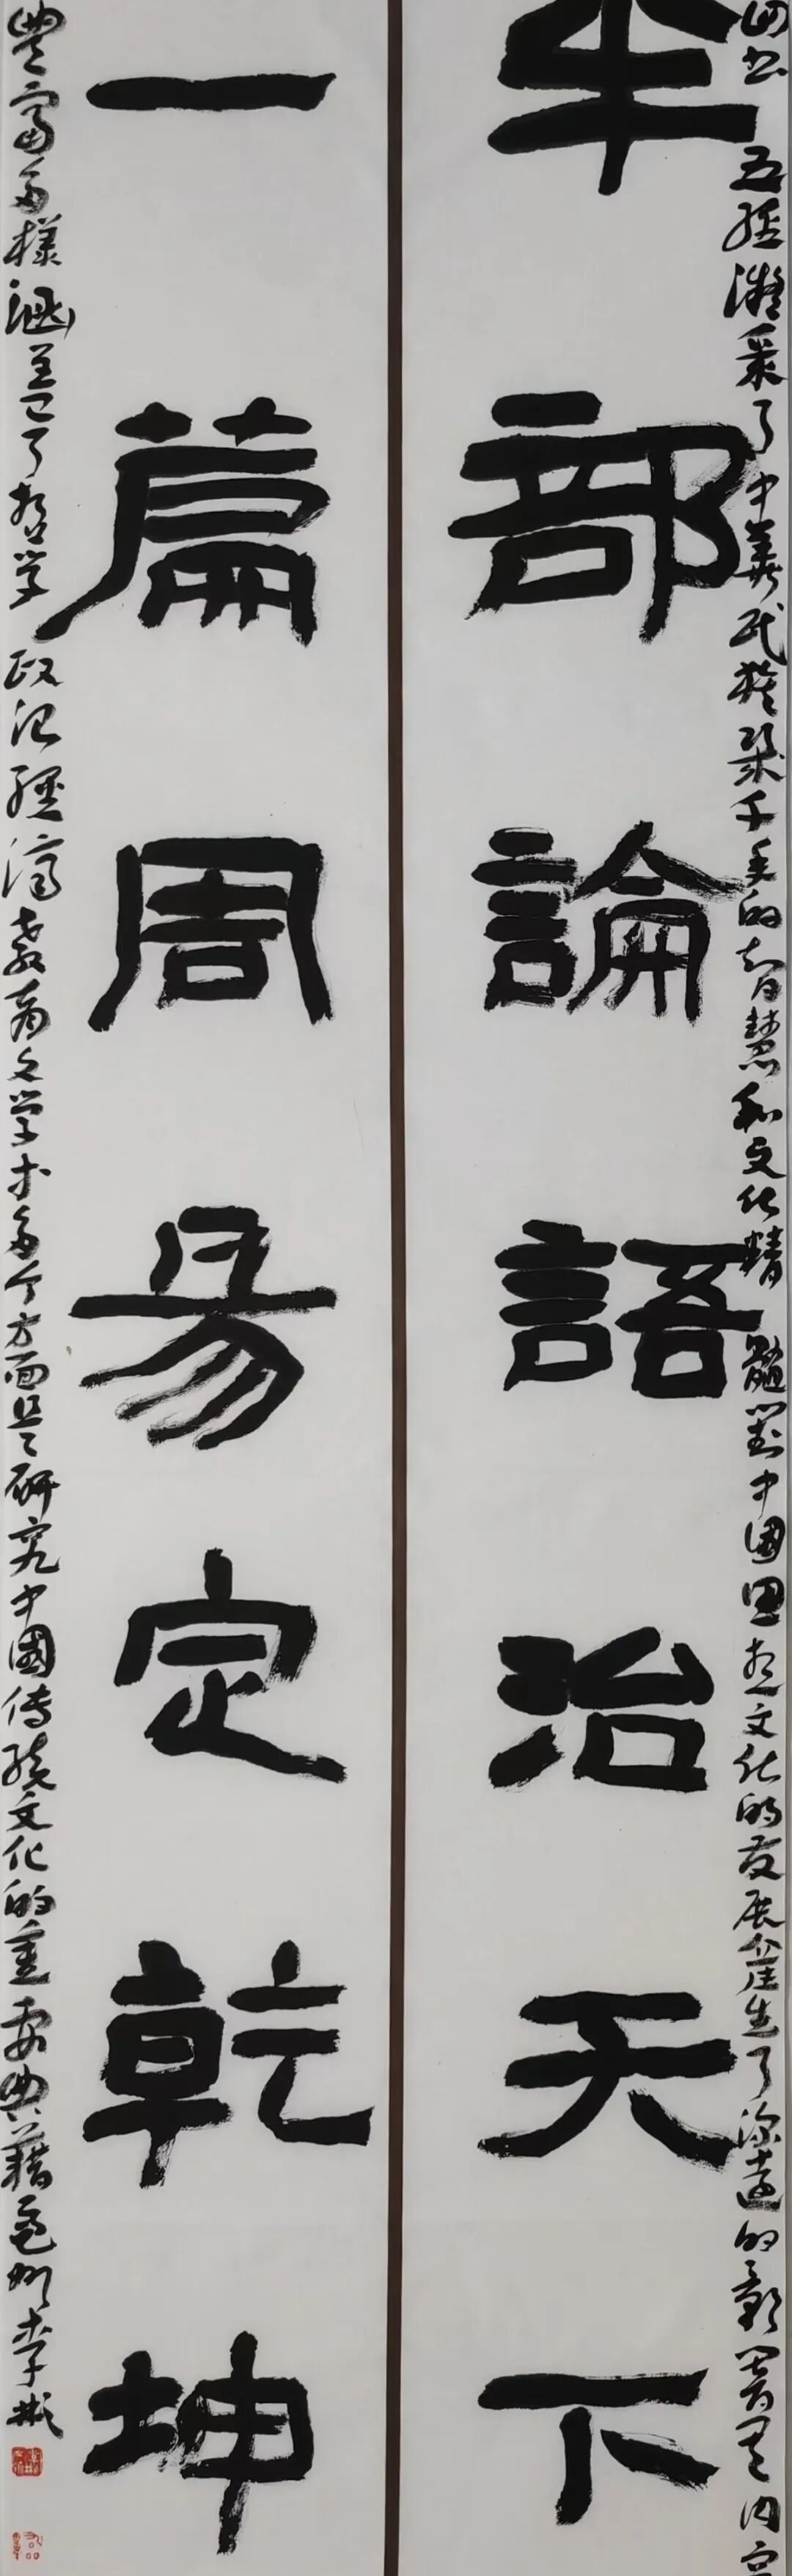 四书五經凝聚了中華民族幾千年的智慧和文化精髓對中國思想文化的发展產生了深遠的影響其内容
半部論語治天下
一篇周易定乾坤
豐富多樣涵盖了哲学政治經濟教育文学术多个方面是研究中國传统文化的重要典籍亳州李彬